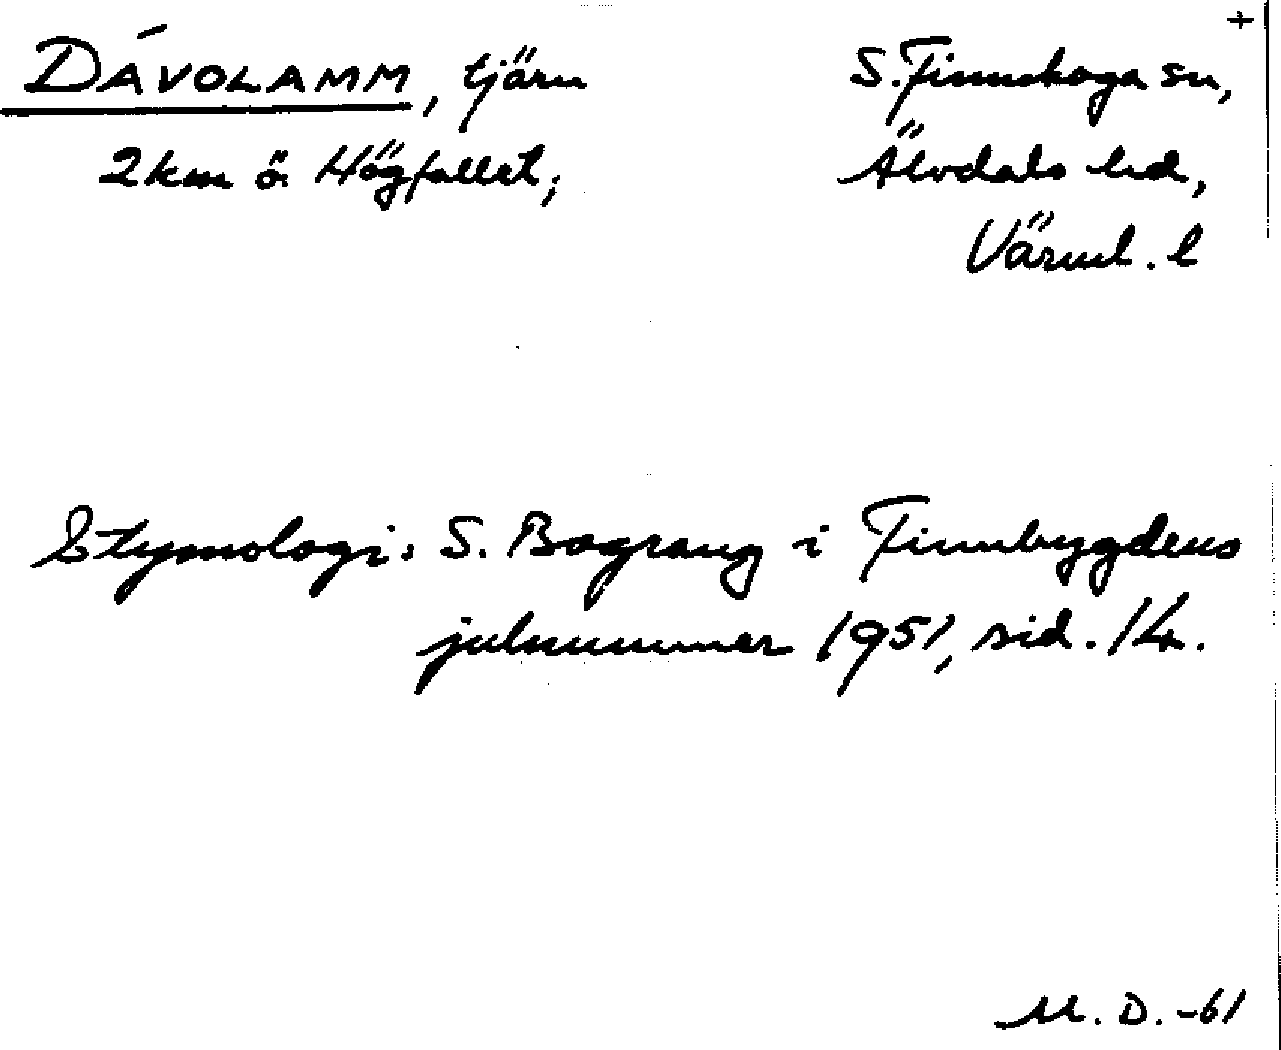 +
DÁVOLAMM, tjärn S. Finnskoga sn,
2 km ö. Högfallet; Älvdals hd,
Värml. l
Etymologi: S. Bograng i Finnbygdens
julnummer 1951, sid. 14.
M. D. -61